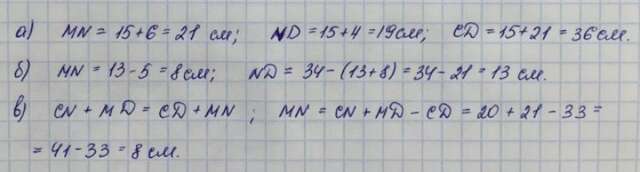 а) MN = 15+6 = 21 см; ND = 15+4 = 19см; CD = 15+21 = 36 см.
б) MN = 13-5 = 8см; ND = 34-(13+8) = 34-21 = 13 см.
в) CN + MD = CD + MN ; MN = CN + MD - CD = 20 + 21 - 33 =
= 41-33 = 8 см.